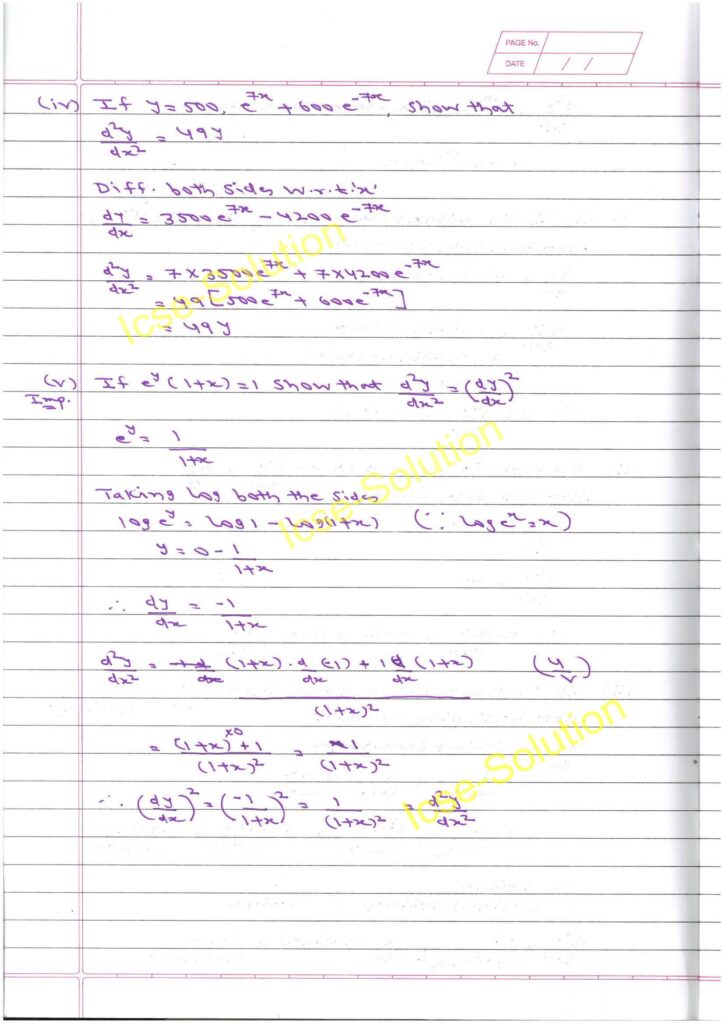 PAGE No.
DATE / /
(iv) If y = 500, e^7x + 600 e^-7x, show that
d²y/dx² = 49y
Diff. both sides w.r.t. 'x'
dy/dx = 3500 e^7x - 4200 e^-7x
d²y/dx² = 7 × 3500 e^7x + 7 × 4200 e^-7x
= 49 [500 e^7x + 600 e^-7x]
= 49y
Icse-Solution
(v) If e^y (1+x) = 1 Show that d²y/dx² = (dy/dx)²
Imp.
e^y = 1/(1+x)
Icse-Solution
Taking log both the sides
log e^y = log 1 - log(1+x) (∵ log e^x = x)
y = 0 - 1/(1+x)
∴ dy/dx = -1/(1+x)
d²y/dx² = (1+x) . d/dx (-1) + 1 d/dx (1+x) (u/v)
(1+x)²
= (1+x)×0 + 1/(1+x)² = 1/(1+x)²
Icse-Solution
∴ (dy/dx)² = (-1/(1+x))² = 1/(1+x)² = d²y/dx²